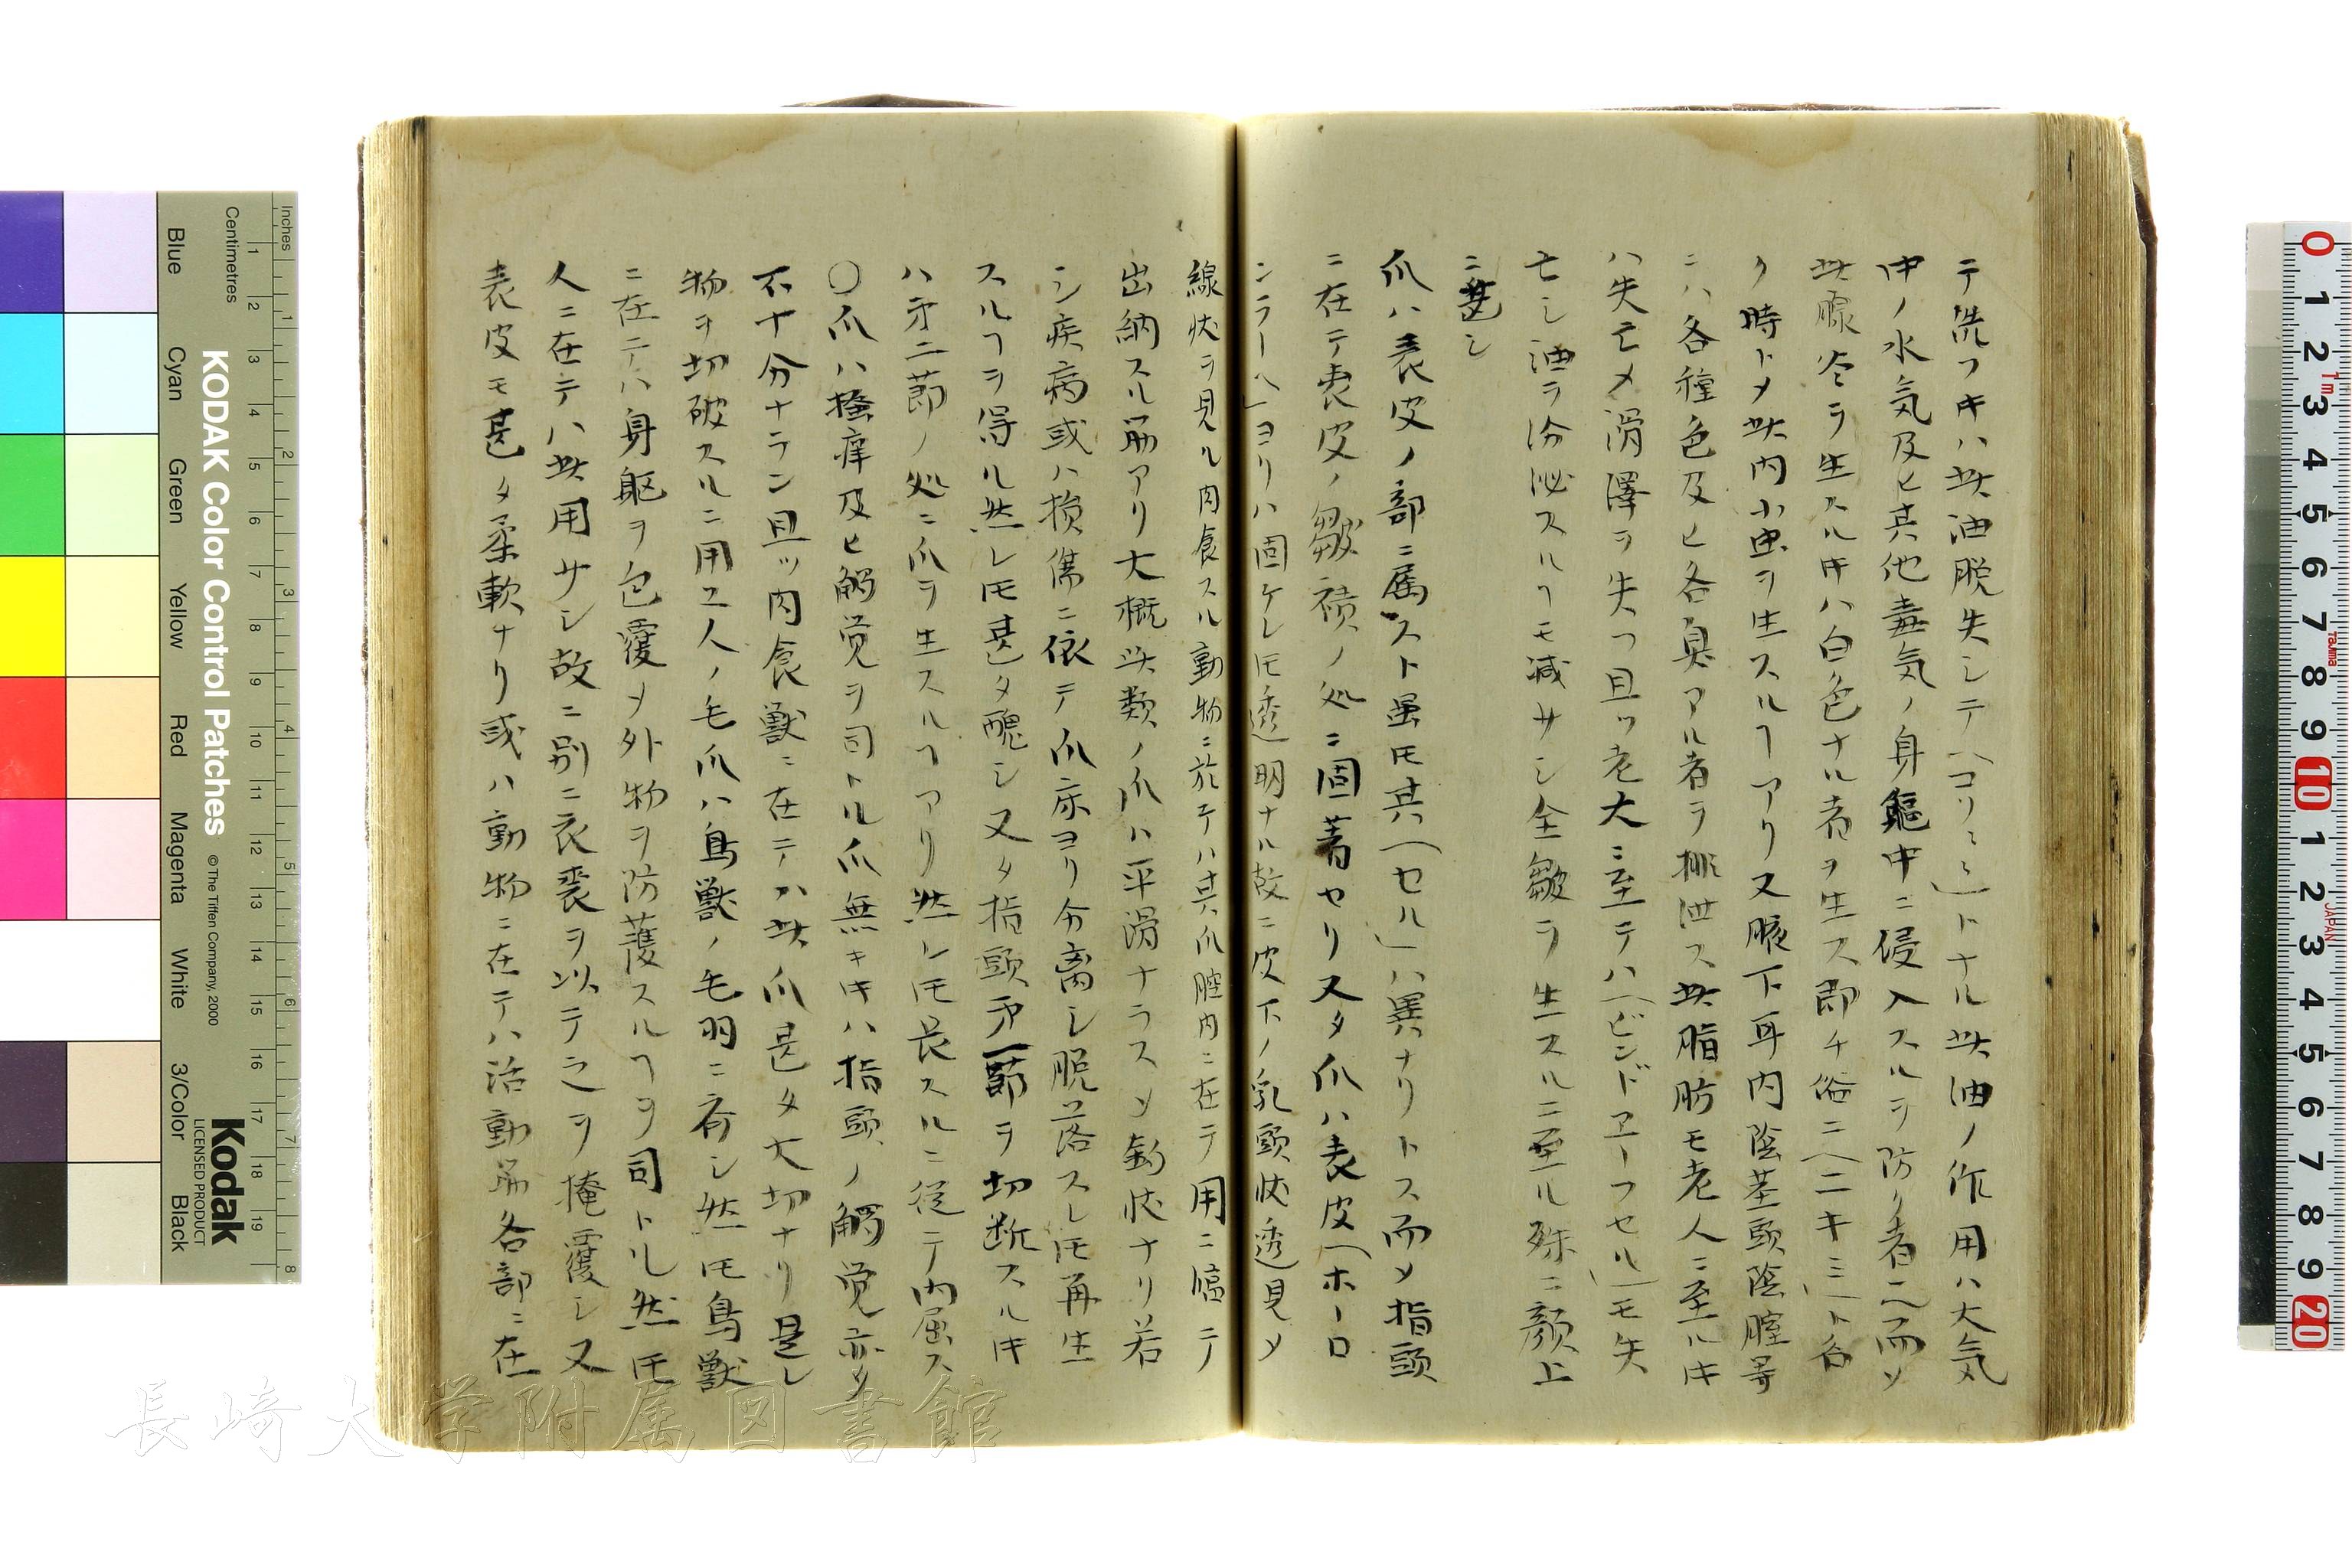 テ洗フキハ此油脱失シテ(コリミ)トナル此油ノ作用ハ大気
中ノ水気及ヒ其他毒気ノ身軀中ニ侵入スルヲ防ク者也而ソ
此腺炎ヲ生スルキハ白色ナル者ヲ生ス即チ俗ニ(ニキミ)ト名
ク時トメ此内小虫ヲ生スルヿアリ又腋下耳内陰茎頭陰腟等
ニハ各種色及ヒ各臭アル者ヲ排泄ス此脂肪モ老人ニ至ルキ
ハ失亡メ滑澤ヲ失フ且ツ老大ニ至テハ(ビンドヱーフセル)モ失
亡シ油ヲ分泌スルヿモ減サシ全皺ヲ生スルニ至ル殊ニ顔上
ニ甚シ
爪ハ表皮ノ部ニ属スト虽㕝其(セル)ハ異ナリトス而ソ指頭
ニ在テ表皮ノ皺襀ノ処ニ固著セリ又タ爪ハ表皮(ホーロ
ンラーヘ)ヨリハ固ケレ㕝透明ナル故ニ皮下ノ乳頭状透見メ
線状ヲ見ル肉食スル動物ニ於テハ其爪腔内ニ在テ用ニ臨テ
出納スル筋アリ大概此類ノ爪ハ平滑ナラスソ釣状ナリ若
シ疾病或ハ損傷ニ依テ爪床ヨリ分离シ脱落スレ㕝再生
スルヿヲ得ル然レ㕝甚タ醜シ又タ指頭㐧一節ヲ切断スルキ
ハ㐧二節ノ処ニ爪ヲ生スルヿアリ然レ㕝長スルニ従テ内屈ス
〇爪ハ搔痒及ヒ觸覚ヲ司トル爪無キキハ指頭ノ觸覚亦タ
不十分ナラン且ツ肉食獣ニ在テハ此爪甚タ大切ナリ是レ
物ヲ切破スルニ用ユ人ノ毛爪ハ鳥獣ノ毛羽ニ斉シ然㕝鳥獣
ニ在テハ身軀ヲ包覆メ外物ヲ防護スルヿヲ司トル然㕝
人ニ在テハ此用サシ故ニ別ニ衣裘ヲ以テ之ヲ掩覆シ又
表皮モ甚タ柔軟ナリ或ハ動物ニ在テハ活動筋各部ニ在
Inches
Centimetres
KODAK Color Control Patches
© The Tiffen Company, 2000
Kodak
LICENSED PRODUCT
Blue
Cyan
Green
Yellow
Red
Magenta
White
3/Color
Black
長崎大学附属図書館